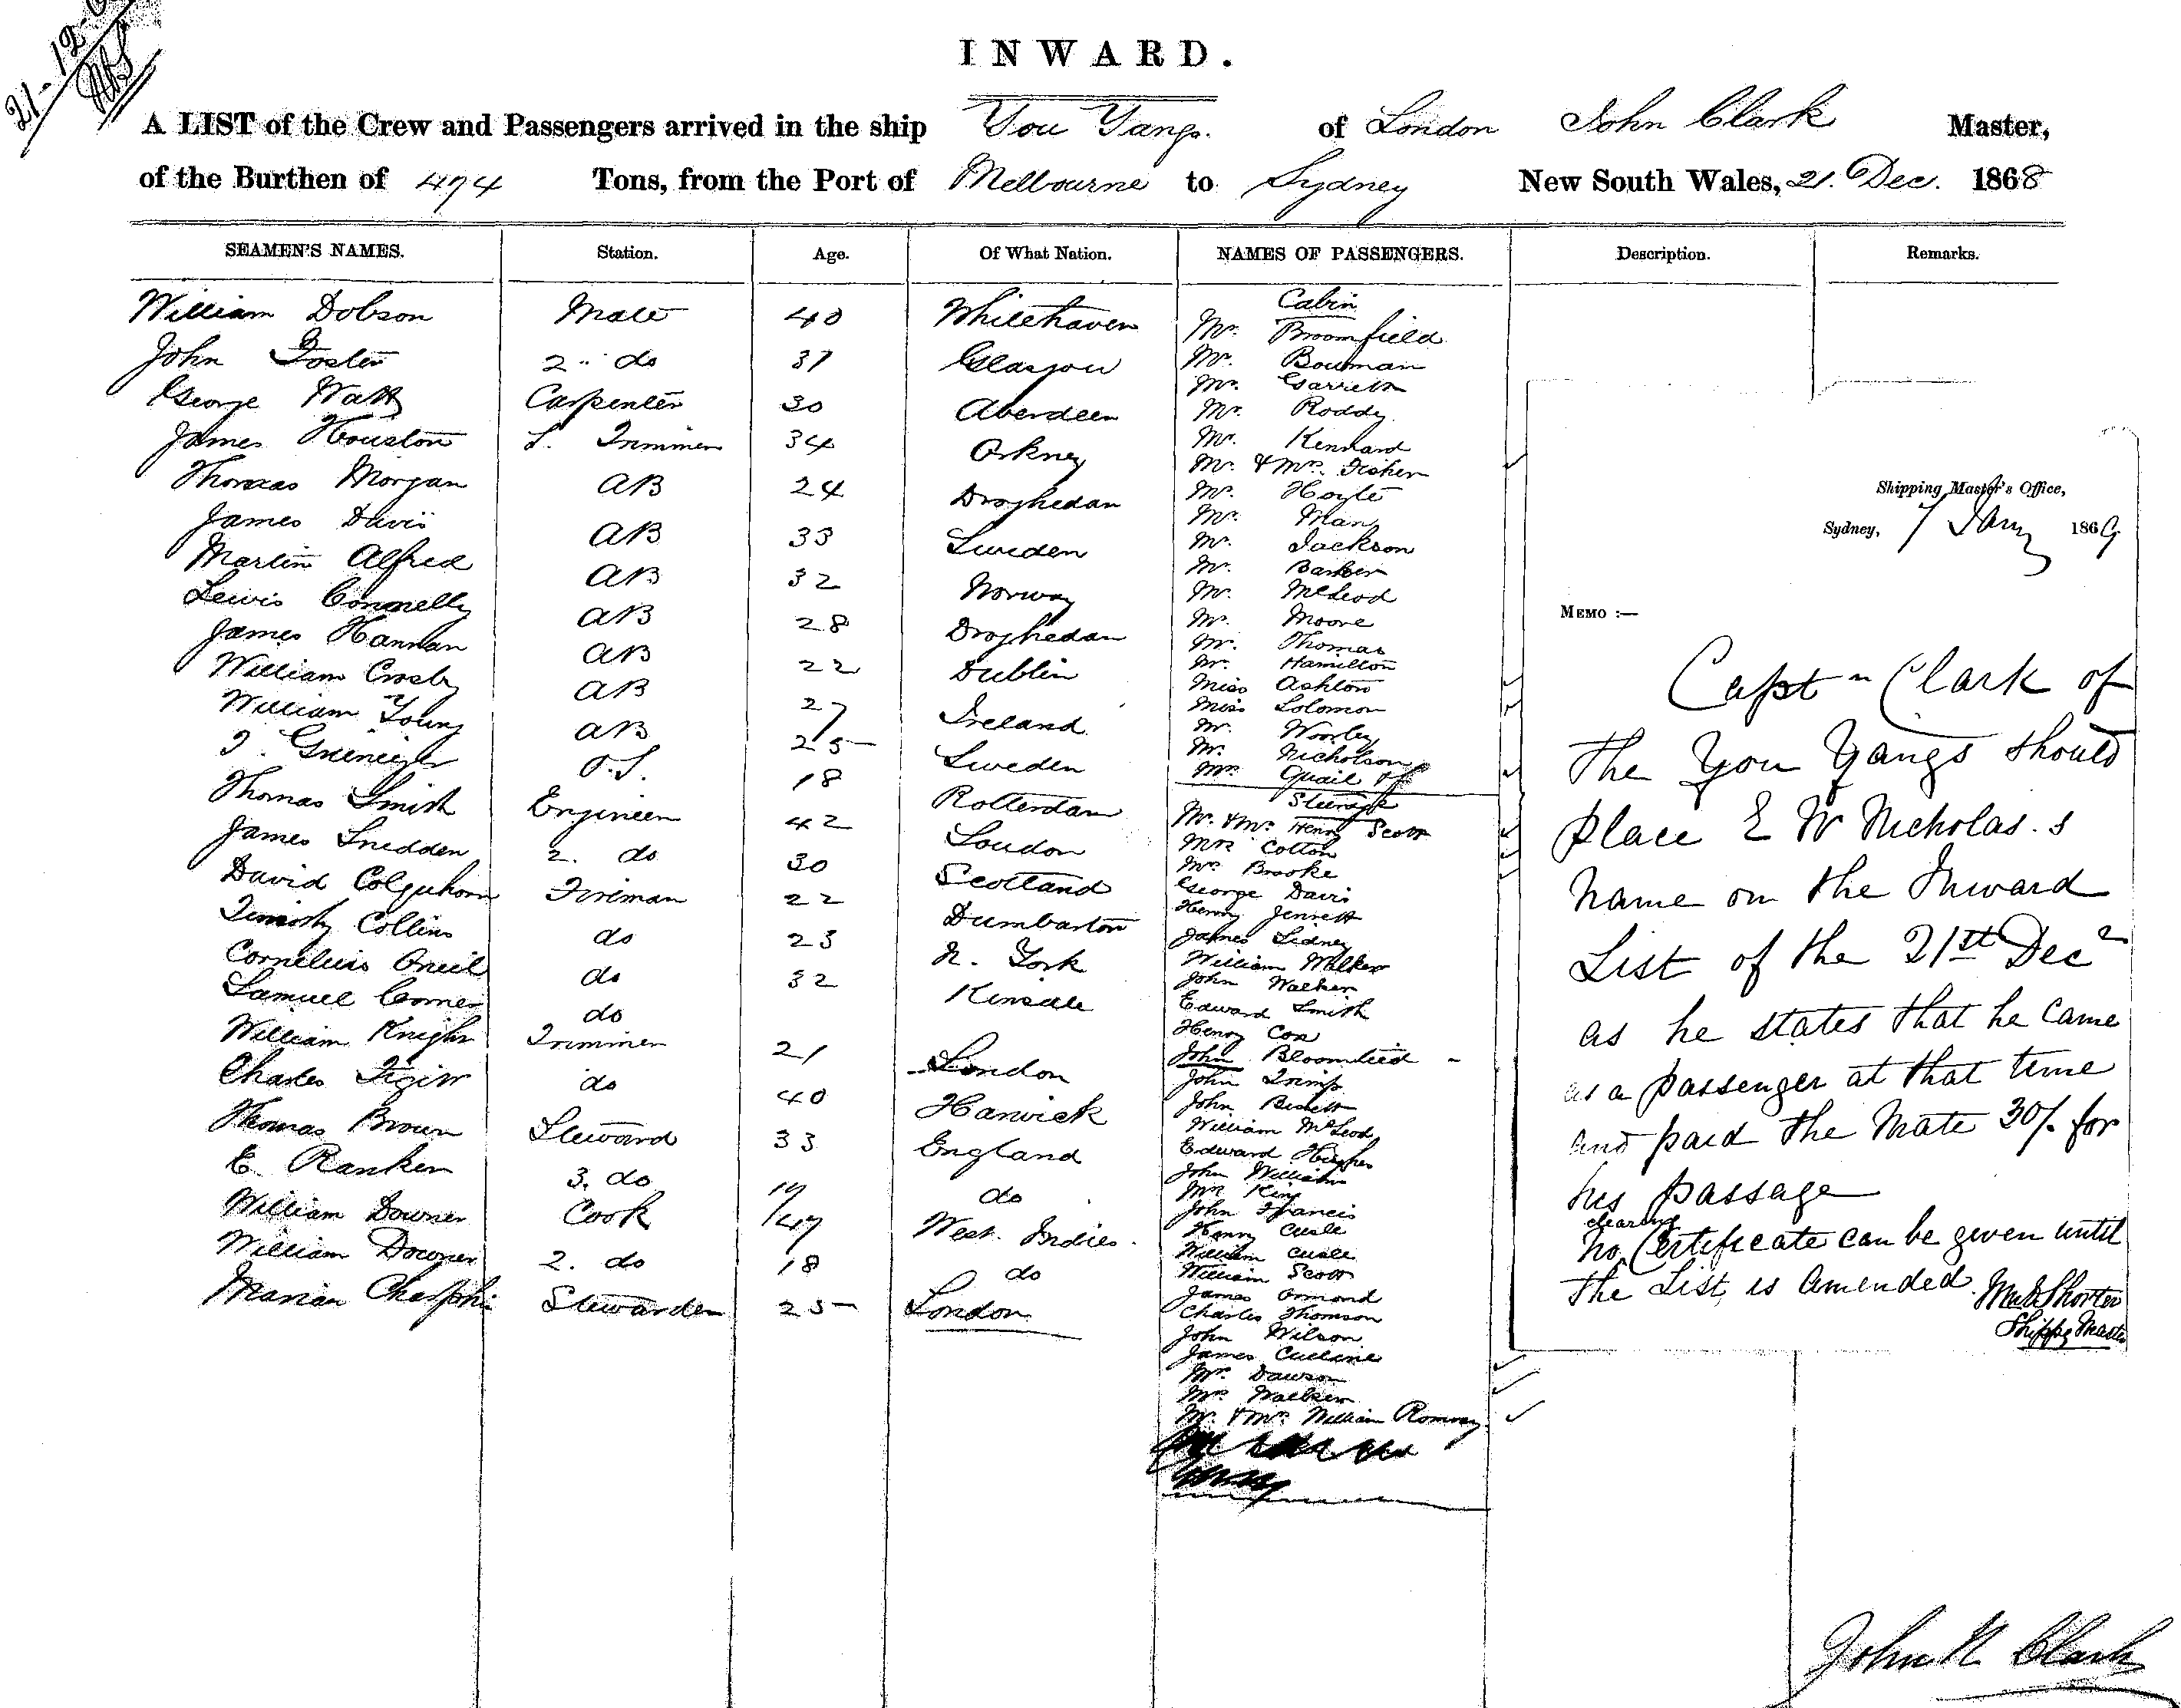 21-12-
INWARD.
A LIST of the Crew and Passengers arrived in the ship You Yangs. of London John Clark Master,
of the Burthen of 474 Tons, from the Port of Melbourne to Sydney New South Wales, 21. Dec. 1868
SEAMEN'S NAMES. Station. Age. Of What Nation. NAMES OF PASSENGERS. Description. Remarks.
William Dobson Mate 40 Whitehaven
John Foster 2" do 37 Glasgow
George Watt Carpenter 30 Aberdeen
James Houston L. Trimmer 34 Orkney
Thomas Morgan AB 24 Droghedan
James Davis AB 33 Sweden
Martin Alfred AB 32 Norway
Lewis Connelly AB 28 Droghedan
James Hannan AB 22 Dublin
William Crosby AB 27 Ireland
William Young AB 25 Sweden
O.S. 18 Rotterdam
Thomas Smith Engineer 42 London
James Snedden 2. do 30 Scotland
David Colquhoun Fireman 22 Dumbarton
Timothy Collins do 23 N. York
Cornelius Oneil do 32 Kinsale
Samuel do
William Knight Trimmer 21 London
Charles do 40 Harwick
Thomas Brown Steward 33 England
E. Ranken 3. do 19 do
William Downer Cook 47 West Indies
William Downer 2. do 18 do
Marian Stewardess 25 London
Cabin
Mr. Broomfield
Mr. Bowman
Mr. Garrett
Mr. Roddy
Mr. Kennard
Mr. & Mrs. Fisher
Mr. Hoyle
Mr. Many
Mr. Jackson
Mr. Barker
Mr. McLeod
Mr. Moore
Mr. Thomas
Mr. Hamilton
Miss Ashton
Miss Solomon
Mr. Worsley
Mr. Nicholson
Mr. Quail
Steerage
Mr. & Mrs. Henry Scott
Mrs Cotton
Mrs Brooke
George Davis
Henry Jennett
James Sidney
William Walker
John Walker
Edward Smith
Henry Cox
John Bloomfield
John Trimp
John
William McLeod
Edward Hughes
John William
Mrs King
John Francis
Henry Cusle
William Cusle
William Scott
James Ormond
Charles Thomson
John Wilson
James Culline
Mr. Dawson
Mrs Walker
Mr. & Mrs. William Romney
Shipping Master's Office,
Sydney, 7 Jany 1869
MEMO :—
Captn Clark of
the You Yangs should
place E W Nicholas.s
name on the Inward
List of the 21st Decr
as he states that he came
as a passenger at that time
and paid the Mate 30/. for
his passage
clearing
No Certificate can be given until
the List is amended.
Shorter
Shippg Master
John N. Clark